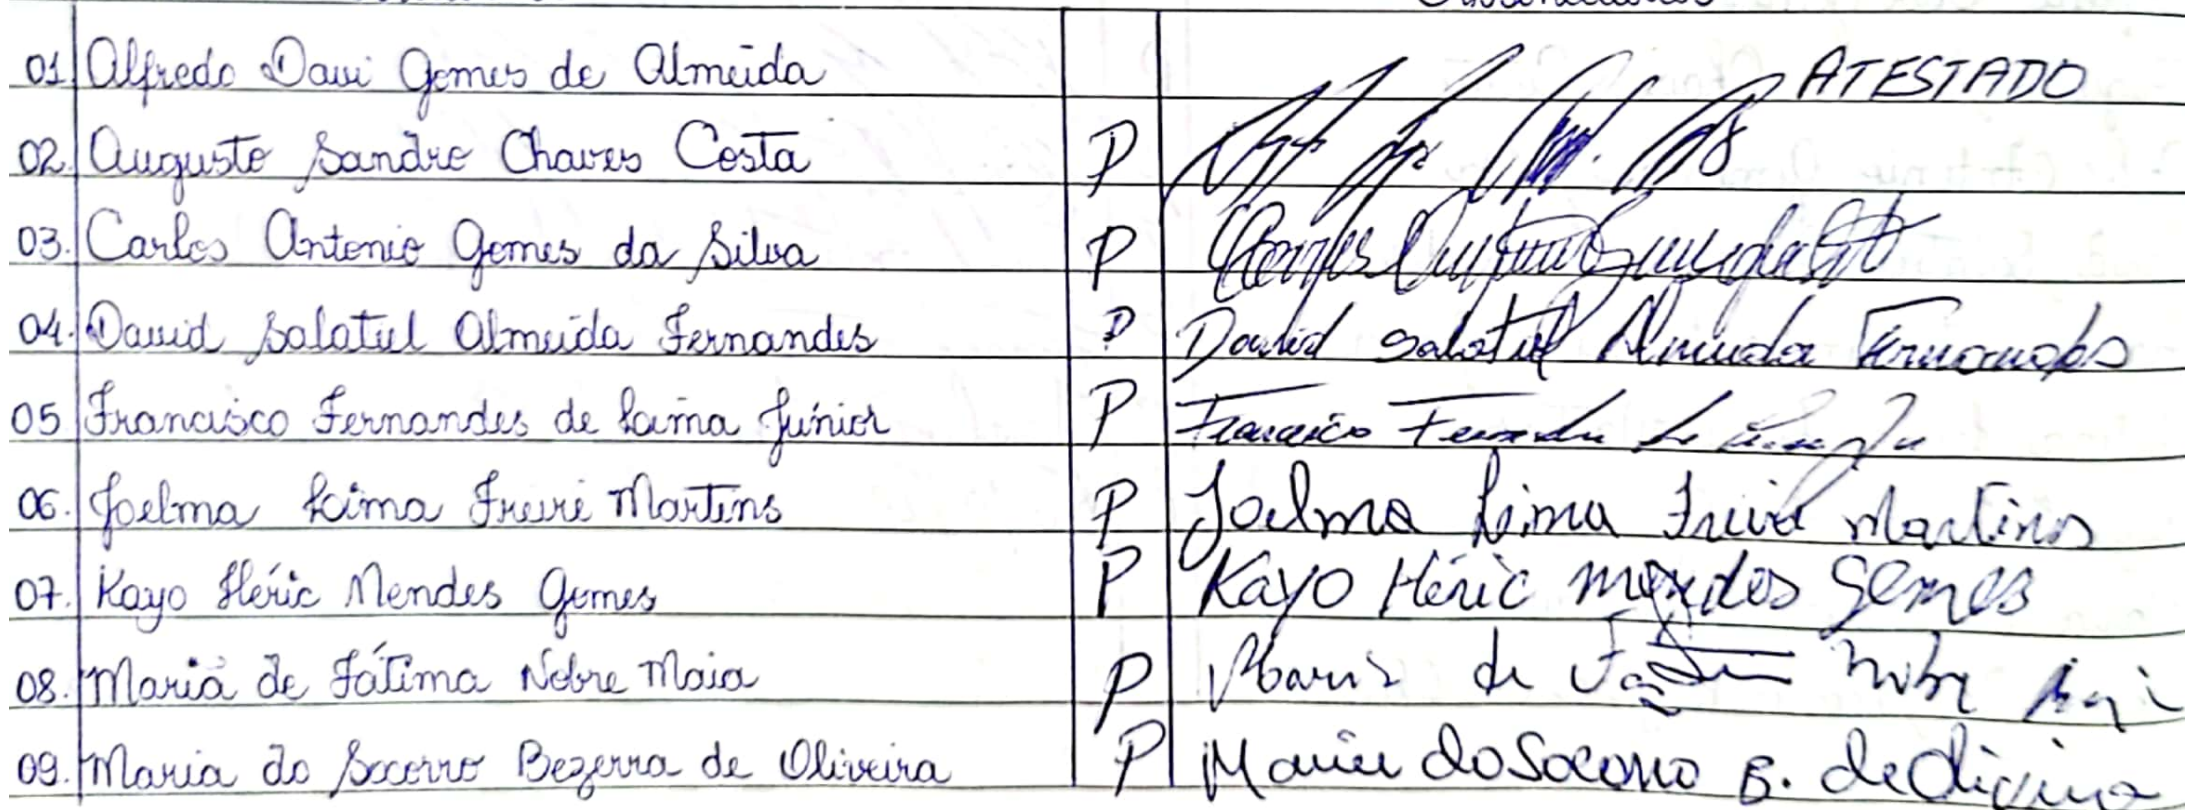 01. Alfredo Davi Gomes de Almeida ATESTADO
02. Augusto Sandro Chaves Costa P
03. Carlos Antonio Gomes da Silva P
04. David Salatiel Almeida Fernandes P David Salatiel Almeida Fernandes
05 Francisco Fernandes de Lima Júnior P Francisco Fernandes de Lima Jr
06. Joelma Lima Freire Martins P Joelma Lima Freire Martins
07. Kayo Héric Mendes Gomes P Kayo Héric Mendes Gomes
08. Maria de Fátima Nobre Maia P Maria de Nobre
09. Maria do Socorro Bezerra de Oliveira P Maria do Socorro B. de Oliveira